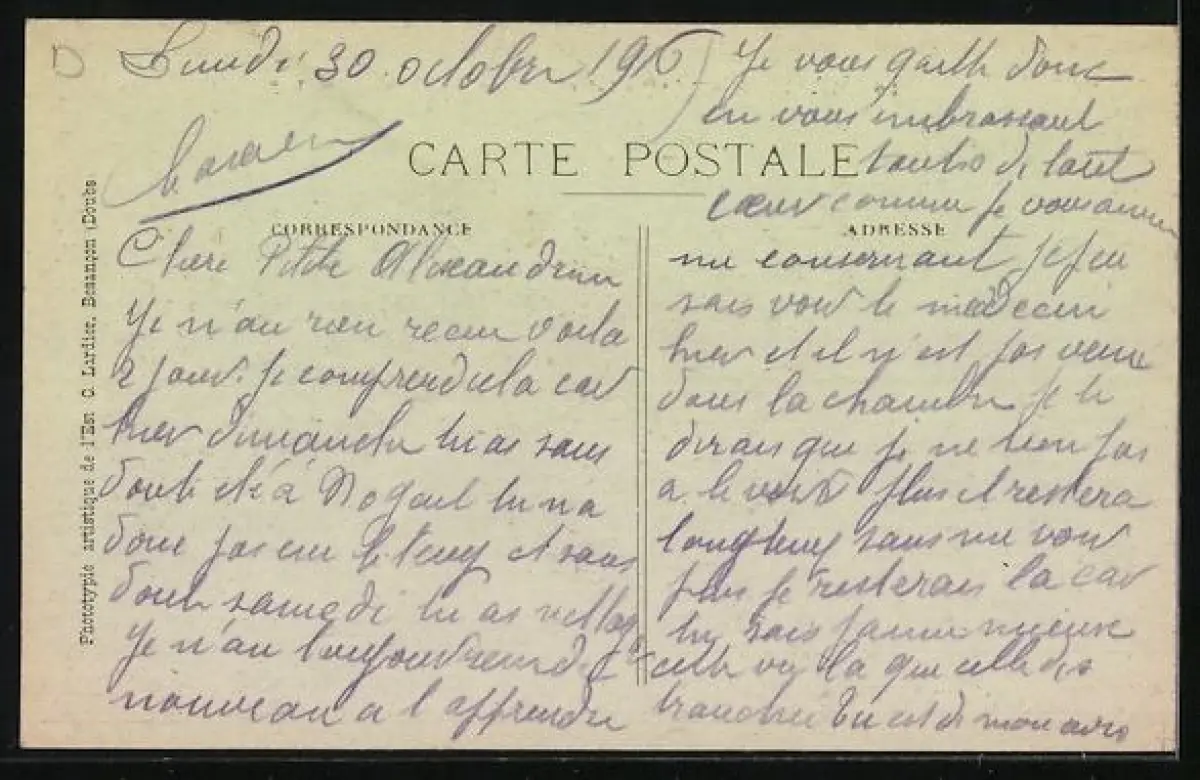 Lundi 30 octobre 1916
CARTE POSTALE
CORRESPONDANCE
Chère Petite Alexandrine
Je n'au rien recu voila
2 jour. je comprend cela car
hier dimanche tu as sans
doute été à Nogent tu na
donc pas eu le temp et sans
doute samedi tu as nettoyé
Je n'au toujour rien de
nouveau a t apprendre
ADRESSE
me consernant je feu
sais voir le medecin
hier et il n'est pas venu
dans la chambre je te
dirais que je ne tien pas
a le voir plus il restera
longtemp sans me voir
plus je resterais la car
tu sais j'aime mieux
cette vie la que celle des
tranchée tu est de mon avis
Je vous quitte donc
en vous embrassant
toutes de tout
cœur comme je vous aime
Phototypie artistique de l'Est C. Lardier, Besançon (Doubs